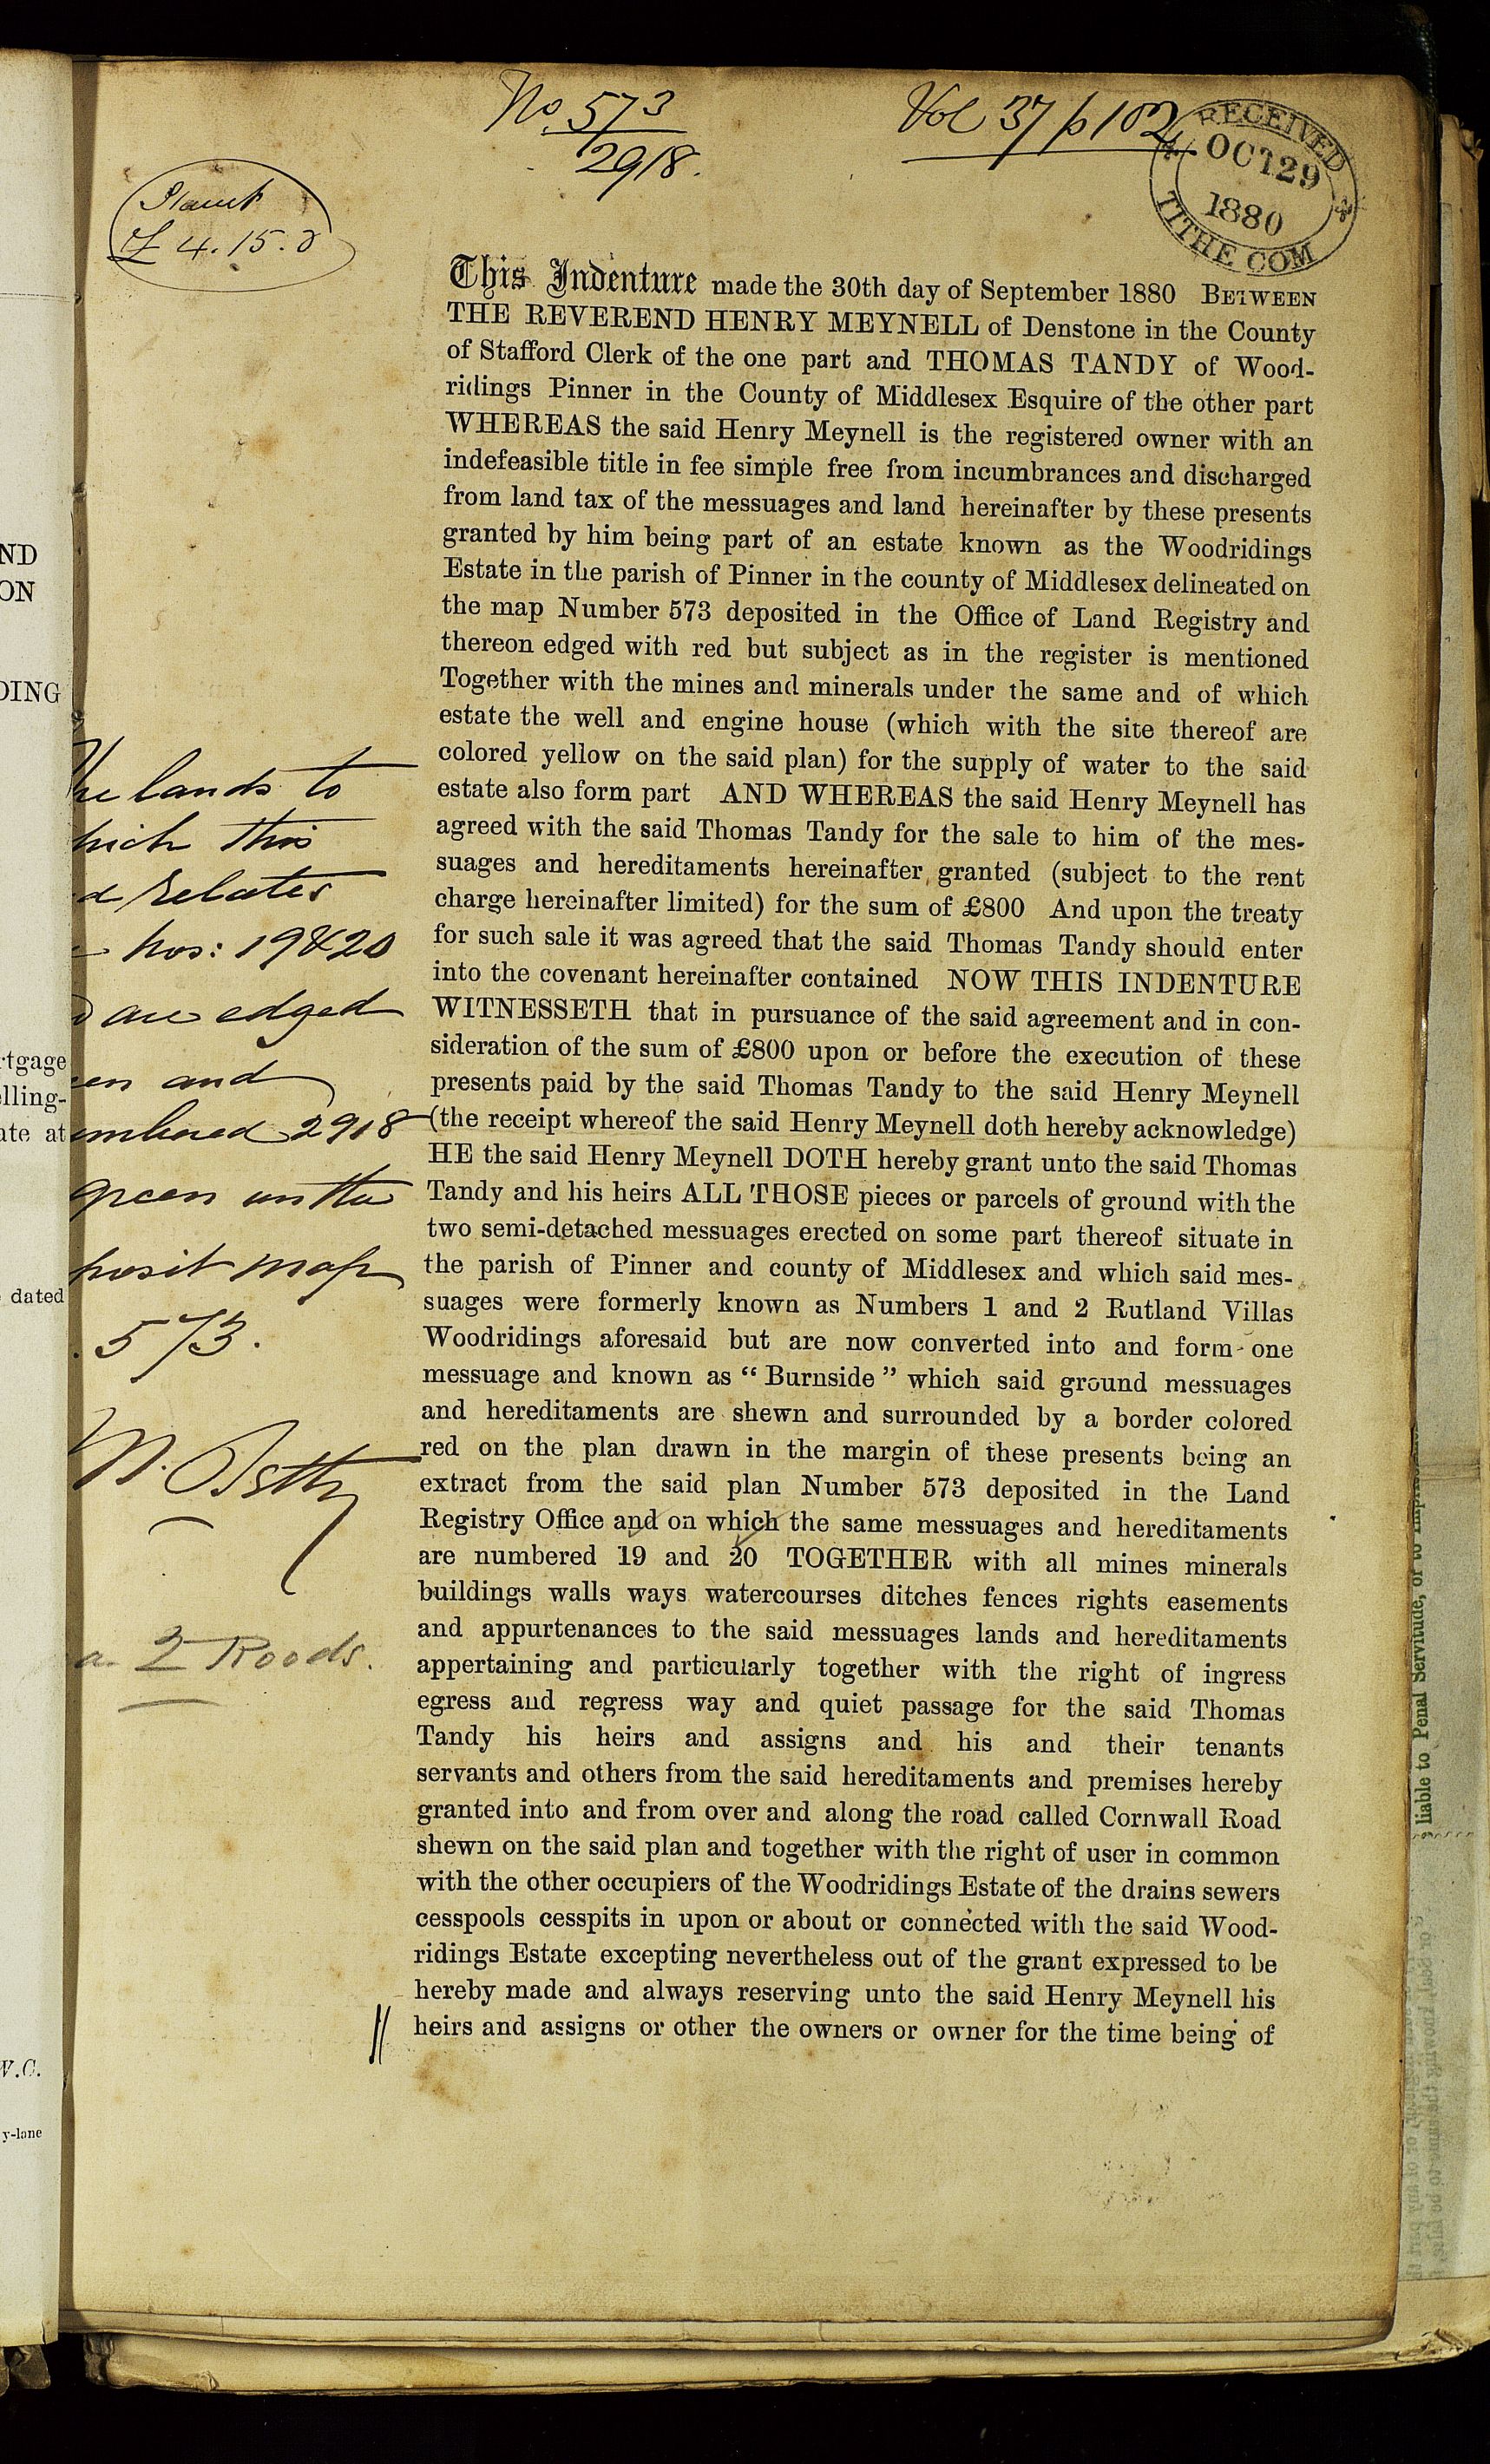 No. 573
2918.
Vol 37 p 102
RECEIVED
OCT 29
1880
TITHE COM
£ 4. 15. 0
This Indenture made the 30th day of September 1880 BETWEEN
THE REVEREND HENRY MEYNELL of Denstone in the County
of Stafford Clerk of the one part and THOMAS TANDY of Wood-
ridings Pinner in the County of Middlesex Esquire of the other part
WHEREAS the said Henry Meynell is the registered owner with an
indefeasible title in fee simple free from incumbrances and discharged
from land tax of the messuages and land hereinafter by these presents
granted by him being part of an estate known as the Woodridings
Estate in the parish of Pinner in the county of Middlesex delineated on
the map Number 573 deposited in the Office of Land Registry and
thereon edged with red but subject as in the register is mentioned
Together with the mines and minerals under the same and of which
estate the well and engine house (which with the site thereof are
colored yellow on the said plan) for the supply of water to the said
estate also form part AND WHEREAS the said Henry Meynell has
agreed with the said Thomas Tandy for the sale to him of the mes-
suages and hereditaments hereinafter granted (subject to the rent
charge hereinafter limited) for the sum of £800 And upon the treaty
for such sale it was agreed that the said Thomas Tandy should enter
into the covenant hereinafter contained NOW THIS INDENTURE
WITNESSETH that in pursuance of the said agreement and in con-
sideration of the sum of £800 upon or before the execution of these
presents paid by the said Thomas Tandy to the said Henry Meynell
(the receipt whereof the said Henry Meynell doth hereby acknowledge)
HE the said Henry Meynell DOTH hereby grant unto the said Thomas
Tandy and his heirs ALL THOSE pieces or parcels of ground with the
two semi-detached messuages erected on some part thereof situate in
the parish of Pinner and county of Middlesex and which said mes-
suages were formerly known as Numbers 1 and 2 Rutland Villas
Woodridings aforesaid but are now converted into and form one
messuage and known as "Burnside" which said ground messuages
and hereditaments are shewn and surrounded by a border colored
red on the plan drawn in the margin of these presents being an
extract from the said plan Number 573 deposited in the Land
Registry Office and on which the same messuages and hereditaments
are numbered 19 and 20 TOGETHER with all mines minerals
buildings walls ways watercourses ditches fences rights easements
and appurtenances to the said messuages lands and hereditaments
appertaining and particularly together with the right of ingress
egress and regress way and quiet passage for the said Thomas
Tandy his heirs and assigns and his and their tenants
servants and others from the said hereditaments and premises hereby
granted into and from over and along the road called Cornwall Road
shewn on the said plan and together with the right of user in common
with the other occupiers of the Woodridings Estate of the drains sewers
cesspools cesspits in upon or about or connected with the said Wood-
ridings Estate excepting nevertheless out of the grant expressed to be
hereby made and always reserving unto the said Henry Meynell his
heirs and assigns or other the owners or owner for the time being of
he lands to
hich this
d relates
nos: 19 & 20
are edged
en and
umbered 2918
green on the
posit map
573.
a. 2 Roods.
ND
ON
DING
rtgage
elling-
ate at
dated
W.C.
y-lane
liable to Penal Servitude, or to